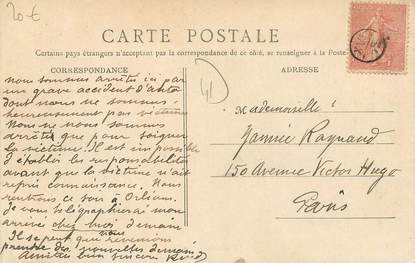 20 €
CARTE POSTALE
Certains pays étrangers n'acceptant pas la correspondance de ce côté, se renseigner à la Poste
CORRESPONDANCE
nous sommes arrêtés ici par
un grave accident d'auto
dont nous ne sommes
heureusement pas victimes
Nous ne nous sommes
arrêtés que pour soigner
la victime. Il est impossible
d'établir les responsabilités
avant que la victime n'ait
repris connaissance. Nous
rentrons ce soir à Orléans.
Je vous télégraphierai mon
arrivée chez moi demain
Il se peut que nous revenions
prendre des nouvelles demain
Amitiés bien sincères
41
ADRESSE
Mademoiselle
Raynaud
150 Avenue Victor Hugo
Paris